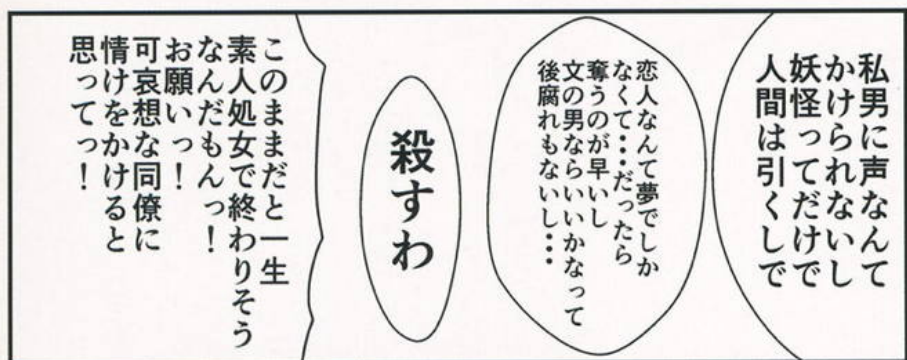 私男に声なんて
かけられないし
妖怪ってだけで
人間は引くしで
恋人なんて夢でしか
なくて・・・だったら
奪うのが早いし
文の男ならいいかなって
後腐れもないし・・・
殺すわ
このままだと一生
素人処女で終わりそう
なんだもんっ！
お願いっ！
可哀想な同僚に
情けをかけると
思ってっ！